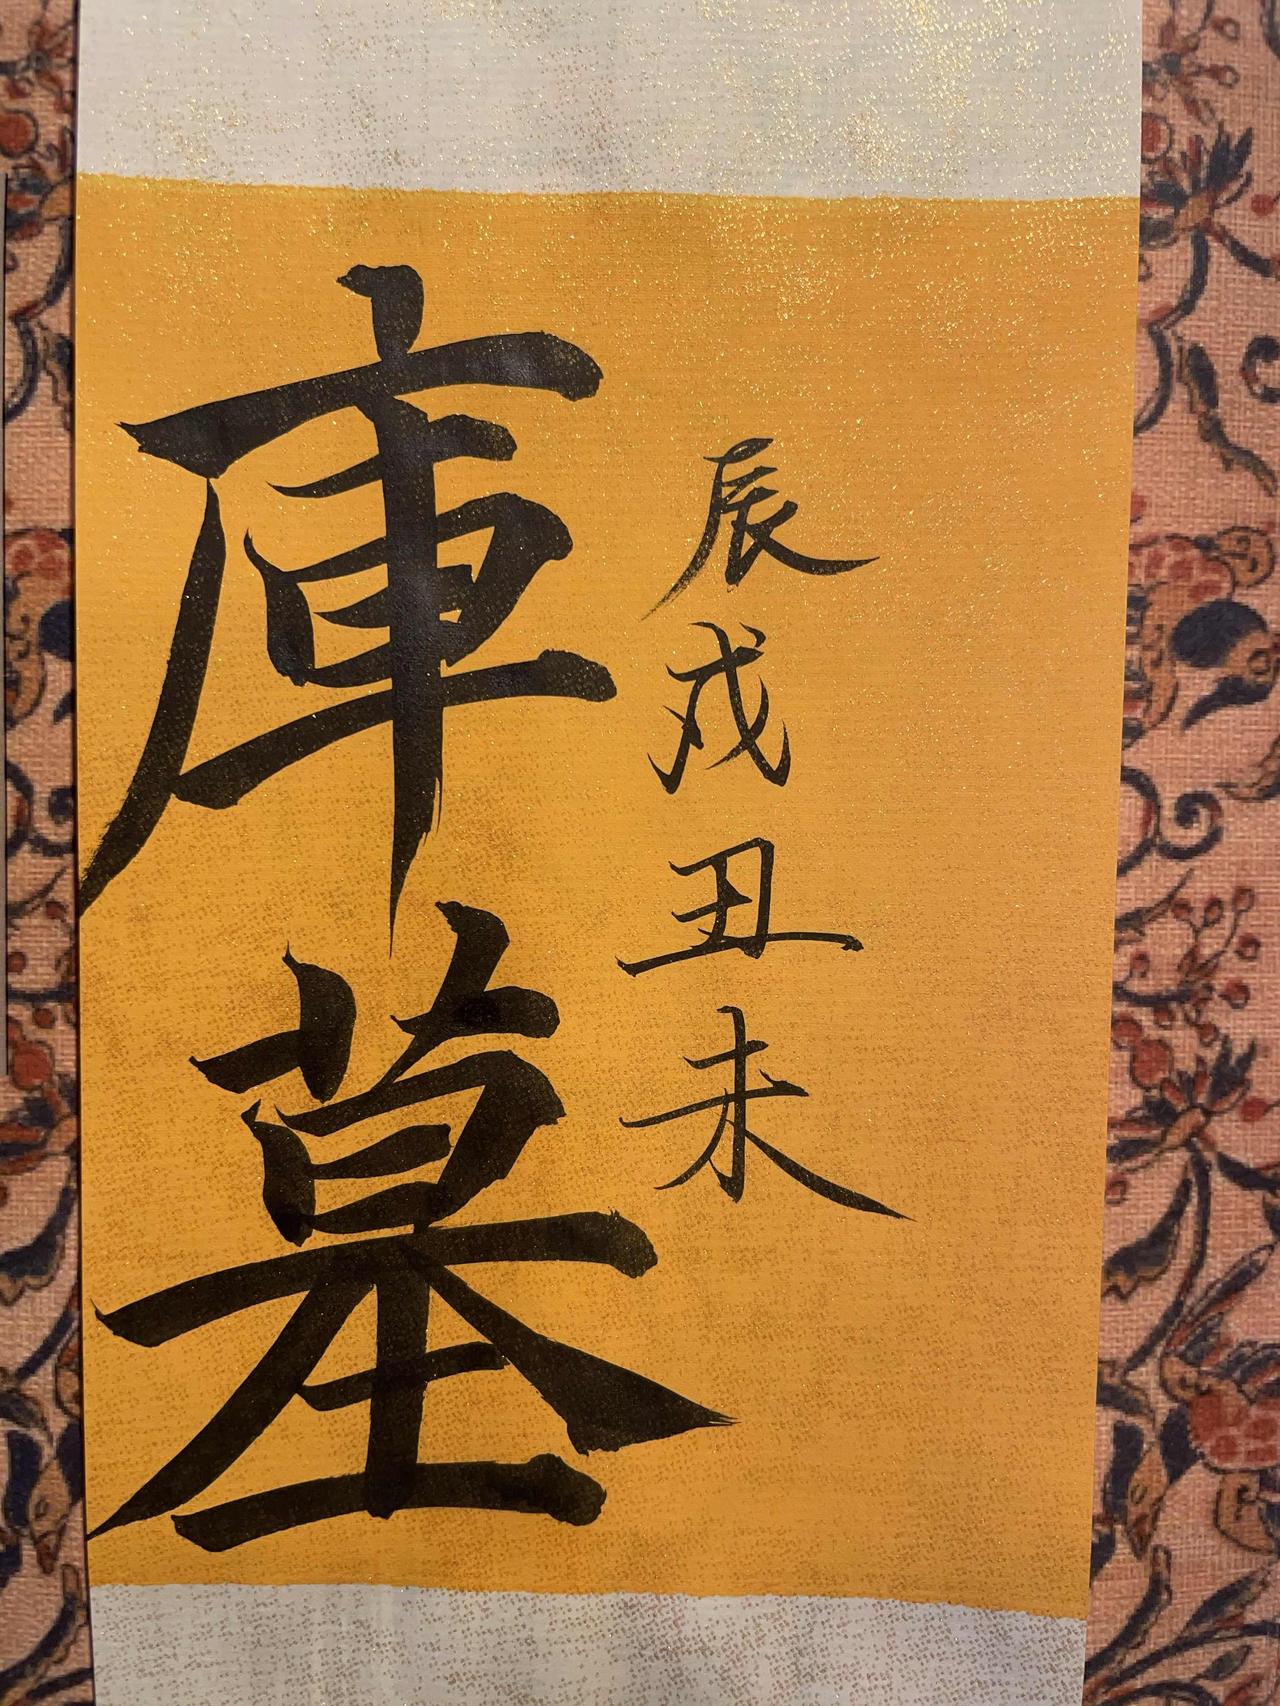 辰戌丑未
庫墓